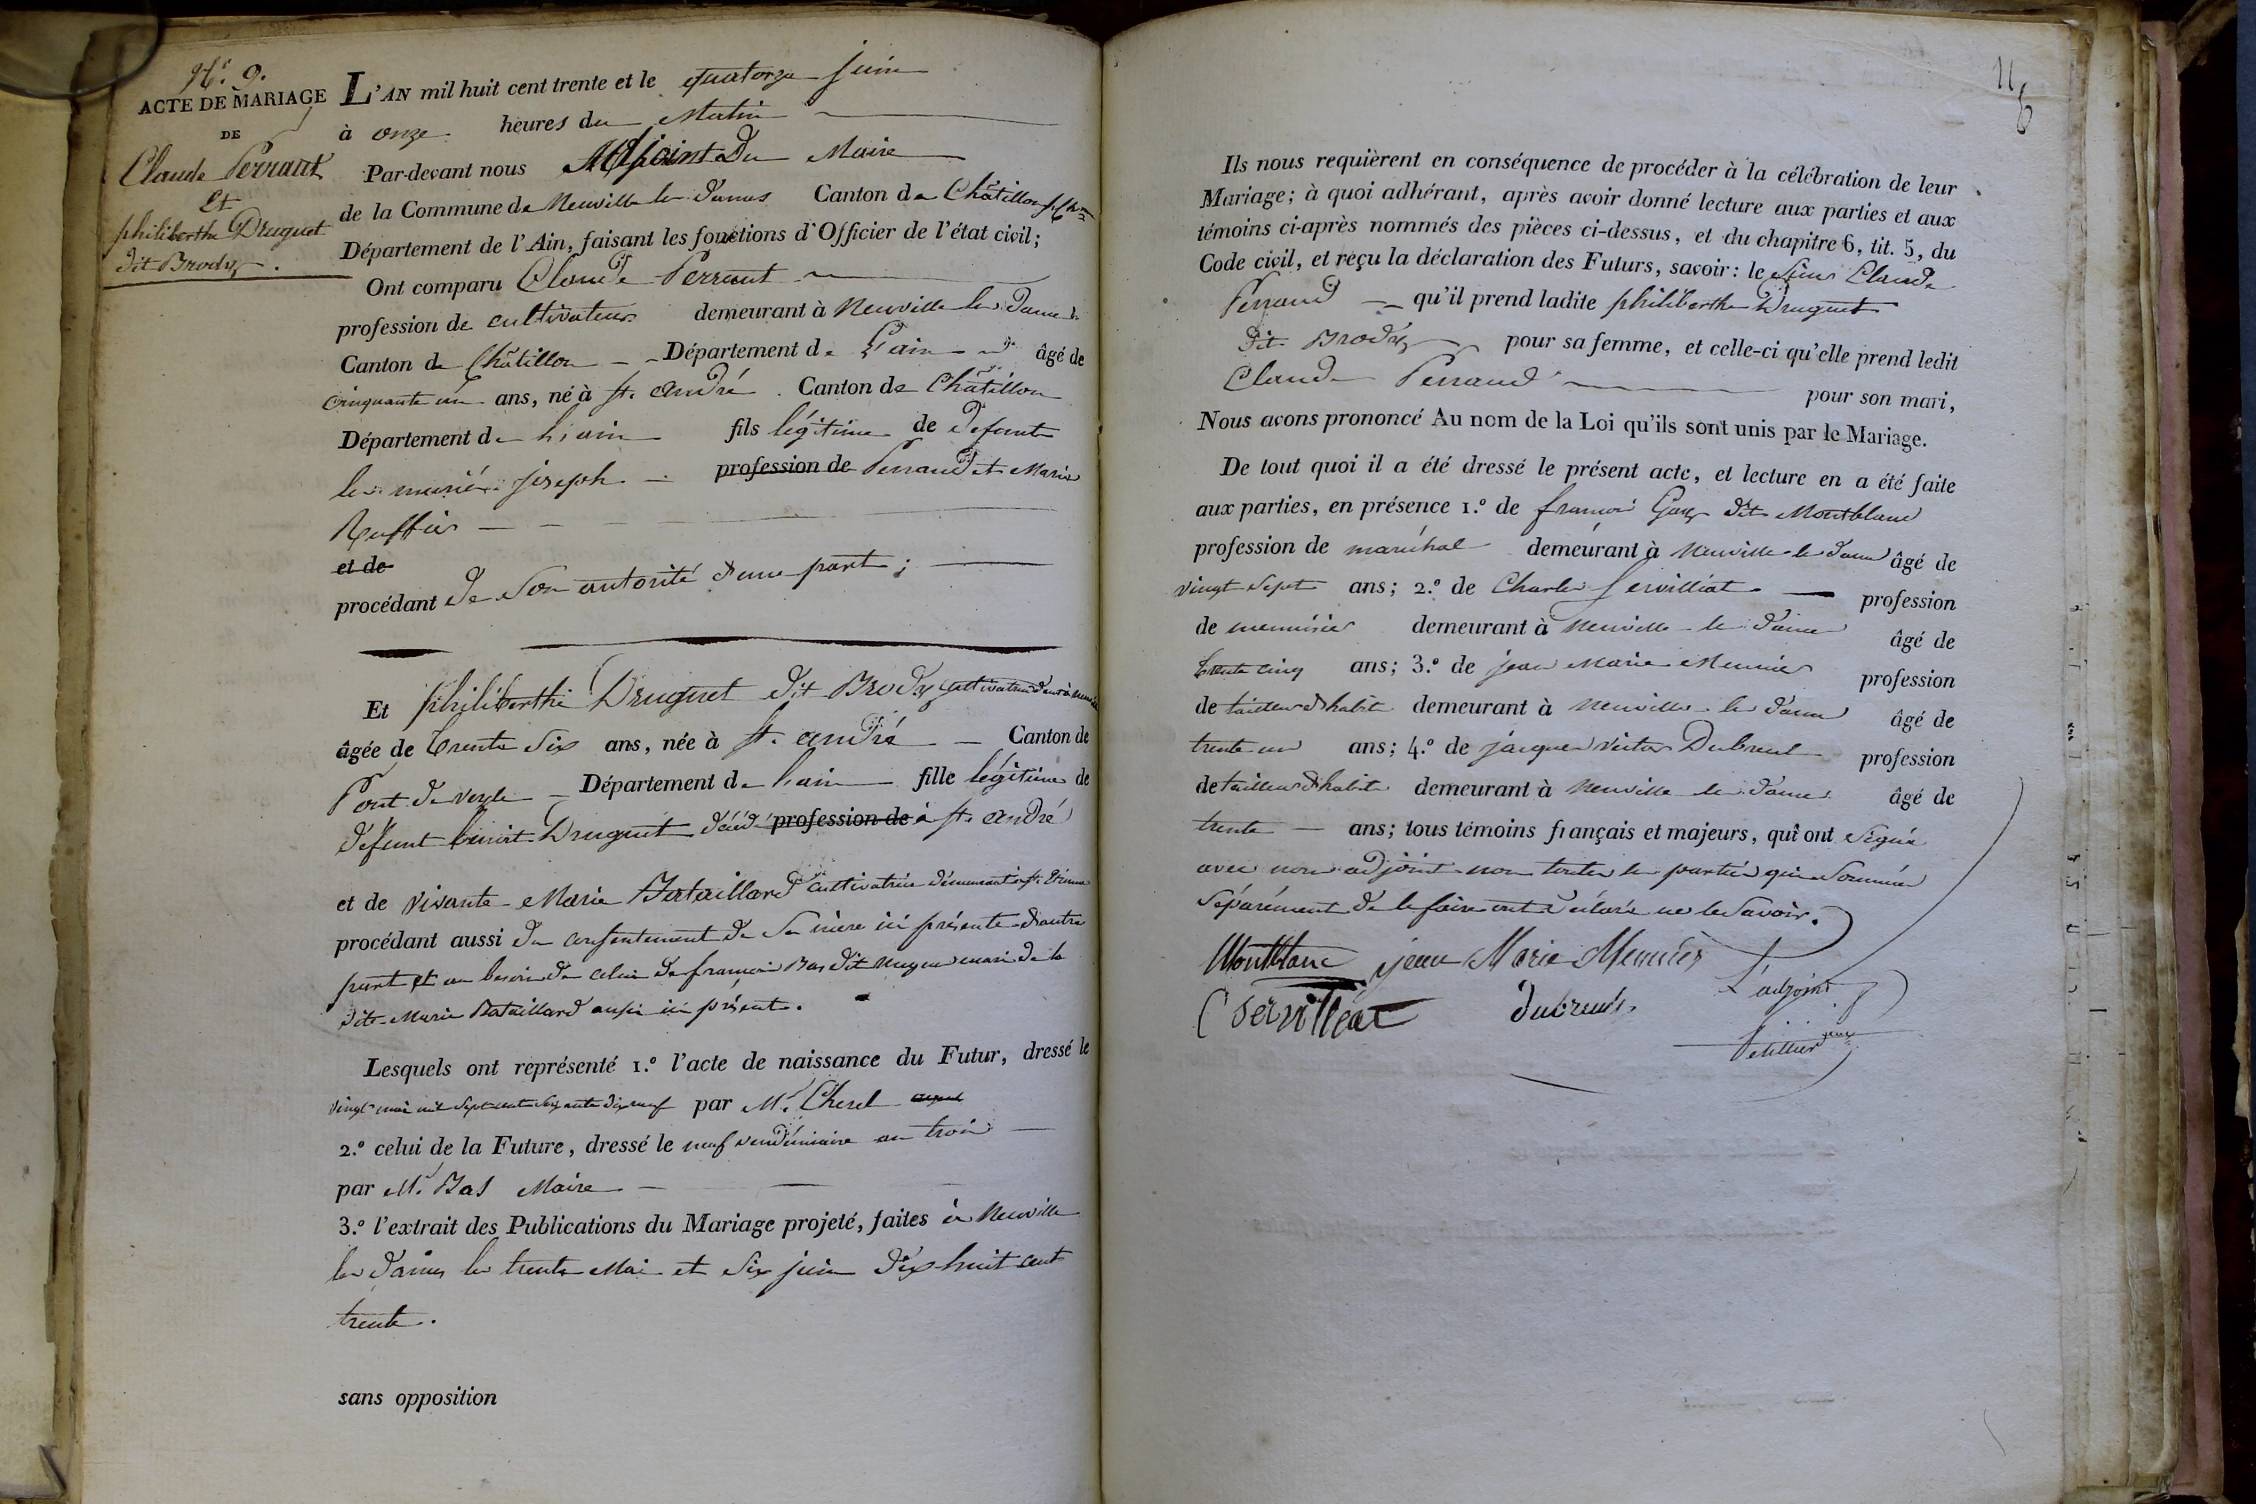 N.° 9.
ACTE DE MARIAGE
DE
Claude Perraut
Et
philiberthe Druguet
dit Brody.
L'AN mil huit cent trente et le quatorze juin
à onze heures du Matin
Par-devant nous Adjoint Du Maire
de la Commune de Neuville les dames Canton de Châtillon
Département de l'Ain, faisant les fonctions d'Officier de l'état civil;
Ont comparu Claude Perraut
profession de cultivateur demeurant à Neuville les Dames
Canton de Châtillon Département de L'ain âgé de
cinquante un ans, né à St. andré Canton de Châtillon
Département de l'ain fils légitime de defunts
les mariés joseph profession de Perraud et Marie
Ruffier
et de
procédant de Son autorité d'une part;
Et philiberthe Druguet dit Brody cultivatrice
âgée de trente Six ans, née à St. andré Canton de
Pont de veyle Département de l'ain fille légitime de
défunt benoit Druguet décédé profession de à St. andré
et de vivante Marie Bataillard cultivatrice demeurant à St. Etienne
procédant aussi du consentement de Sa mère ici présente d'autre
part et au besoin de celui de francois Bas dit mari de la
dite Marie Bataillard aussi ici présent.
Lesquels ont représenté 1.° l'acte de naissance du Futur, dressé le
vingt mai mil Sept cent Soixante dix neuf par Mr. Cherel
2.° celui de la Future, dressé le neuf vendémiaire an trois
par Mr. Bas Maire
3.° l'extrait des Publications du Mariage projeté, faites à Neuville
les dames les trente Mai et Six juin dix huit cent
trente.
sans opposition
116
Ils nous requièrent en conséquence de procéder à la célébration de leur
Mariage; à quoi adhérant, après avoir donné lecture aux parties et aux
témoins ci-après nommés des pièces ci-dessus, et du chapitre 6, tit. 5, du
Code civil, et reçu la déclaration des Futurs, savoir: le Sieur Claude
Perraud qu'il prend ladite philiberthe Druguet
dit Brody pour sa femme, et celle-ci qu'elle prend ledit
Claude Perraud pour son mari,
Nous avons prononcé Au nom de la Loi qu'ils sont unis par le Mariage.
De tout quoi il a été dressé le présent acte, et lecture en a été faite
aux parties, en présence 1.° de francois Gay dit Montblanc
profession de maréchal demeurant à Neuville les dames âgé de
vingt Sept ans; 2.° de Charles Servilliat profession
de menuisier demeurant à Neuville les dames âgé de
trente cinq ans; 3.° de jean Marie Meunier profession
de tailleur d'habits demeurant à Neuville les dames âgé de
trente un ans; 4.° de jacques victor Dubreuil profession
de tailleur d'habits demeurant à Neuville les dames âgé de
trente ans; tous témoins français et majeurs, qui ont Signé
avec nous adjoint non toutes les parties qui Sommées
Séparément de le faire ont déclaré ne le Savoir.
Montblanc jean Marie Meunier
C Servilleat dubreuil L'adjoint